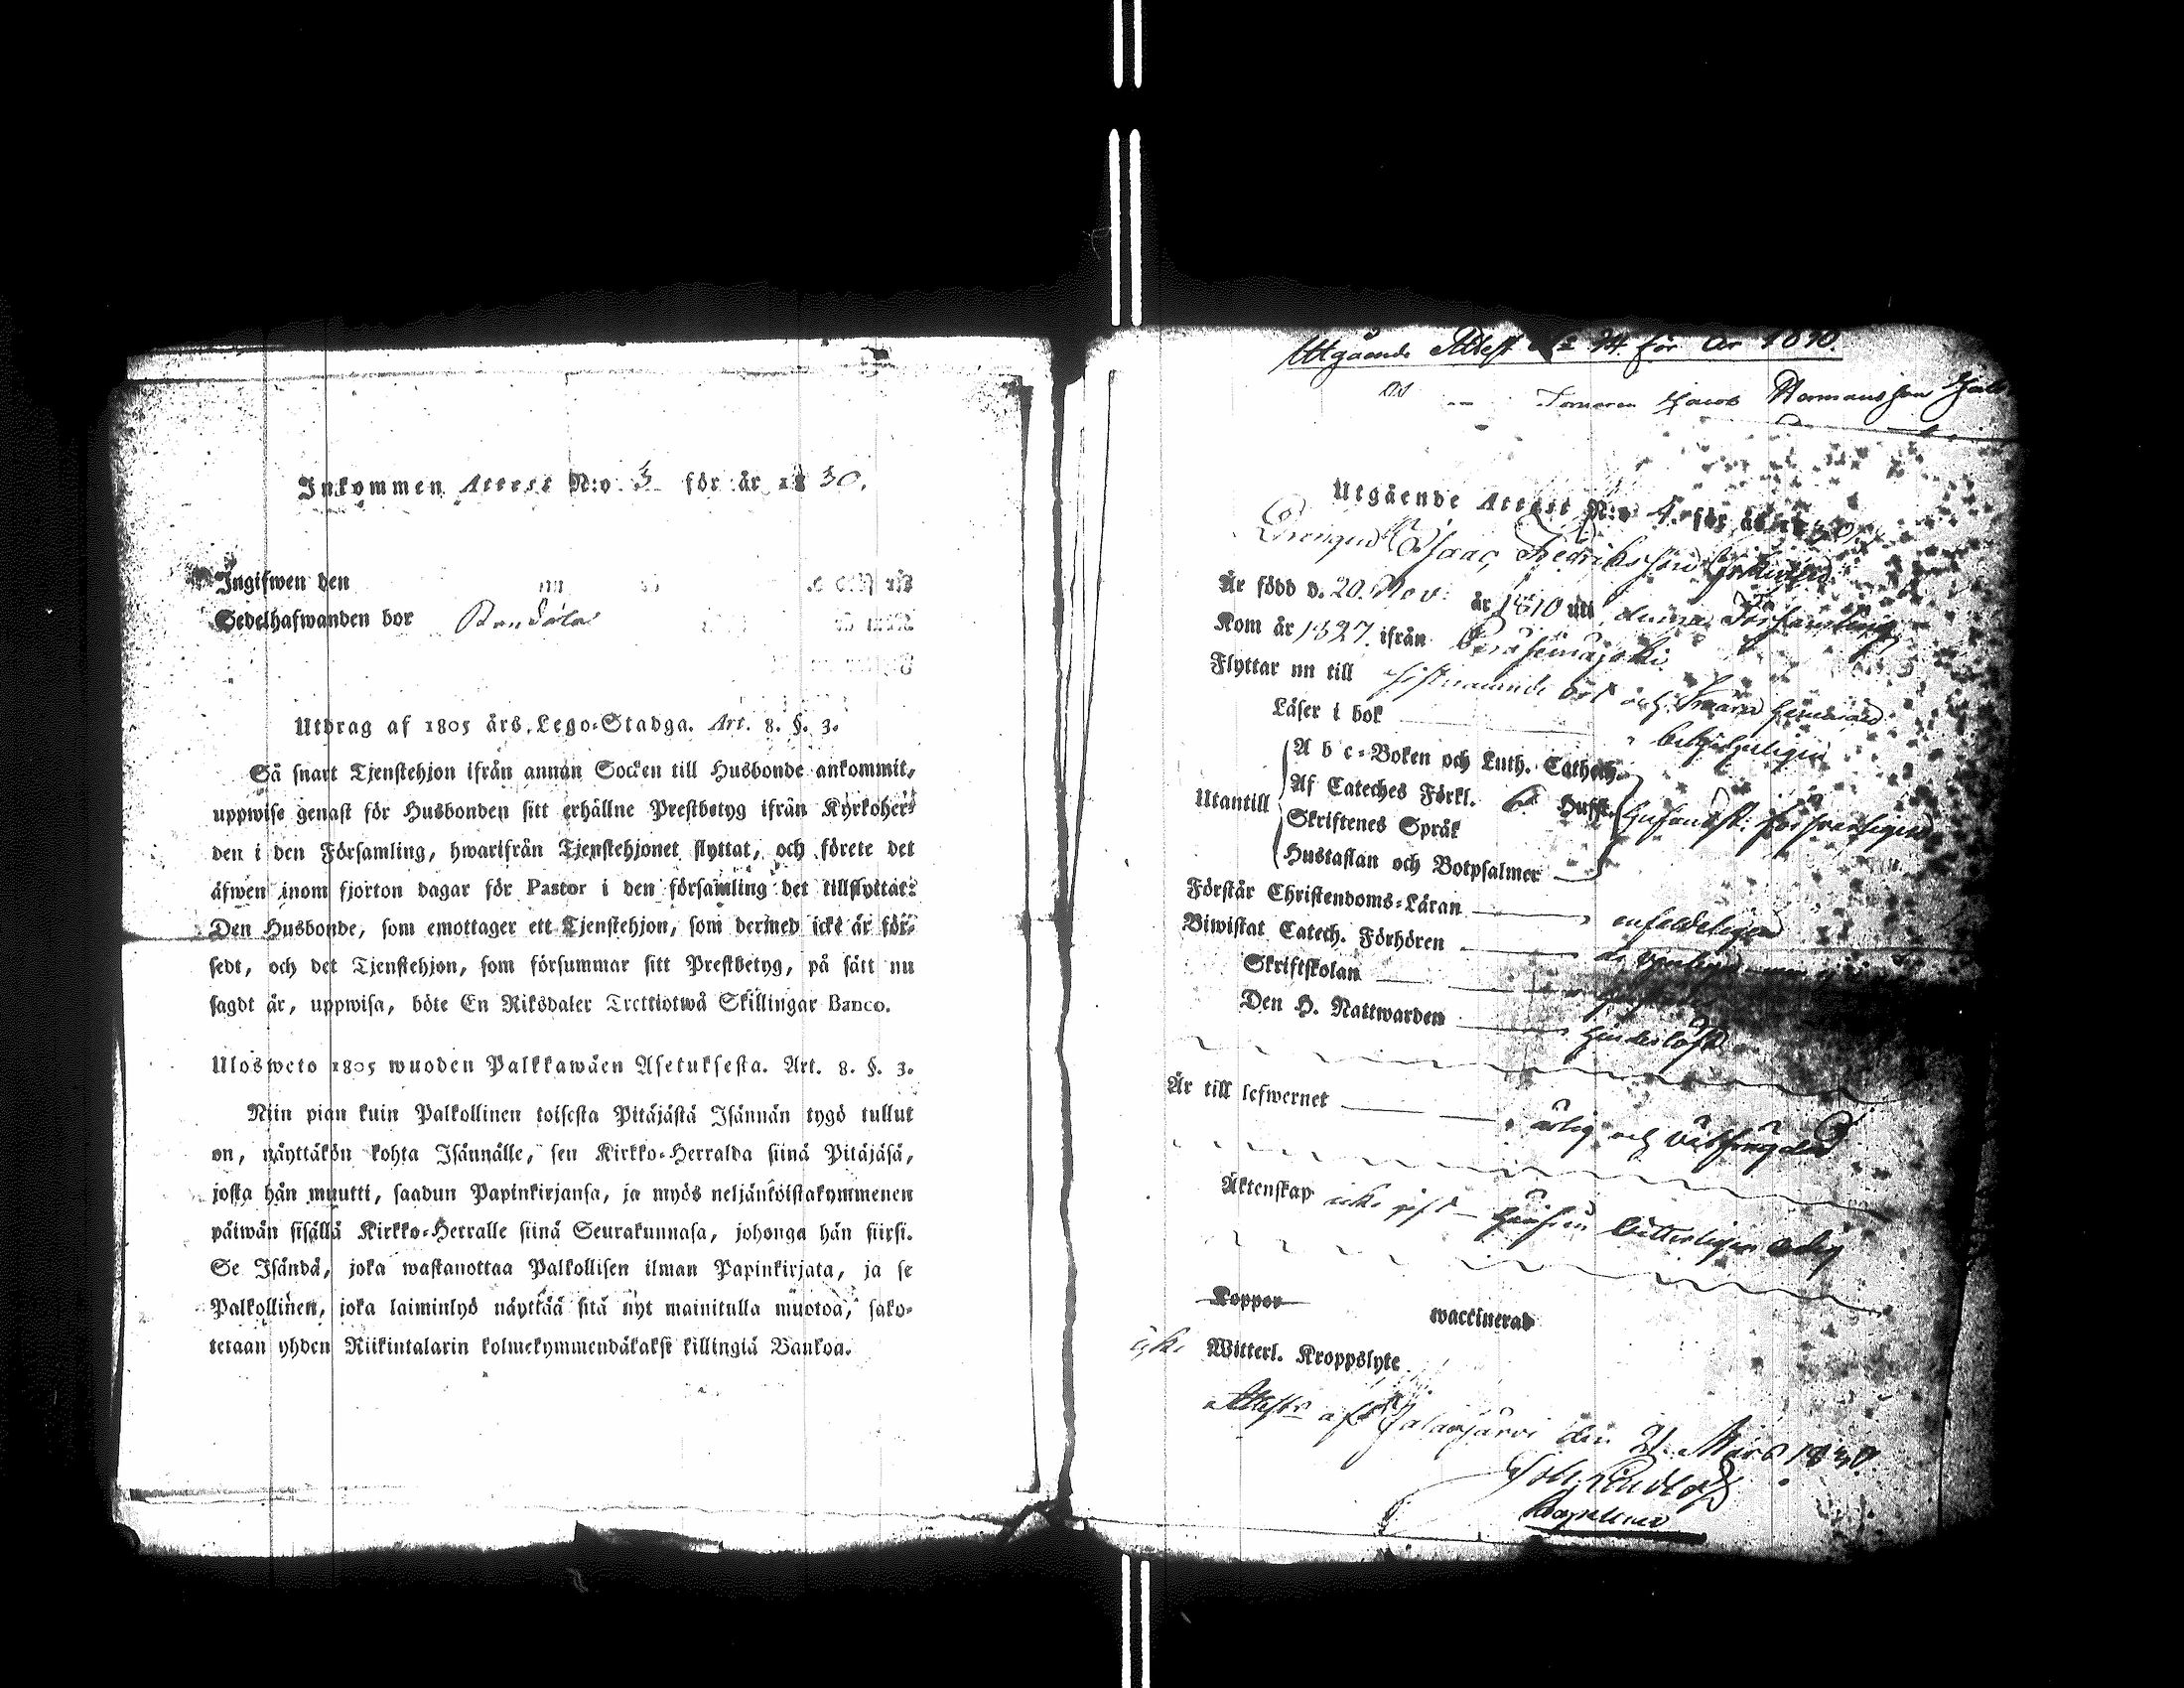 Inkommen Attest N:o 3 för år 1830.
Ingifwen den
Sedelhafwanden bor
Utdrag af 1805 års Lego-Stadga. Art. 8. §. 3.
Så snart Tjenstehjon ifrån annan Socken till Husbonde ankommit,
uppwise genast för Husbonden sitt erhållne Prestbetyg ifrån Kyrkoher-
den i den Församling, hwarifrån Tjenstehjonet flyttat, och förete det
äfwen inom fjorton dagar för Pastor i den församling det tillflyttat:
Den Husbonde, som emottager ett Tjenstehjon, som dermed icke är för-
sedt, och det Tjenstehjon, som försummar sitt Prestbetyg, på sätt nu
sagdt är, uppwisa, böte En Riksdaler Trettiotwå Skillingar Banco.
Ulosweto 1805 wuoden Palkkawäen Asetuksesta. Art. 8. §. 3.
Niin pian kuin Palkollinen toisesta Pitäjästä Isännän tygö tullut
on, näyttäkön kohta Isännälle, sen Kirkko-Herralda siinä Pitäjäsä,
josta hän muutti, saadun Papinkirjansa, ja myös neljäntöistakymmenen
päiwän sisällä Kirkko-Herralle siinä Seurakunnasa, johonga hän siirsi.
Se Isändä, joka wastanottaa Palkollisen ilman Papinkirjata, ja se
Palkollinen, joka laiminlyö näyttää sitä nyt mainitulla muotoa, sako-
tetaan yhden Riikintalarin kolmekymmendäkaksi killingiä Bankoa.
Utgående Attest No 24 för år
Jacob Hermansson
Utgående Attest N:o 4 för år 1830
Drengen Isaac Fredriksson
Är född d. 20. Nov. år 1810 uti denna Församling
Kom år 1827 ifrån Peräseinäjoki
Flyttar nu till sistnämnde ort och
Läser i bok
Utantill
A b c-Boken och Luth. Cathech.
Af Cateches Förkl. Hufst.
Skriftenes Språk
Hustaflan och Botpsalmer
försvarligen
Förstår Christendoms-Läran enfaldeligen
Biwistat Catech. Förhören
Skriftskolan
Den H. Nattwarden
Är till lefwernet ärlig och
Äktenskap icke gift ledig
Koppor wackinerad
icke Witterl. Kroppslyte
Attest. af Jalasjärvi den 21. Mars 1830.
Joh. Lindlöf
Kapellan